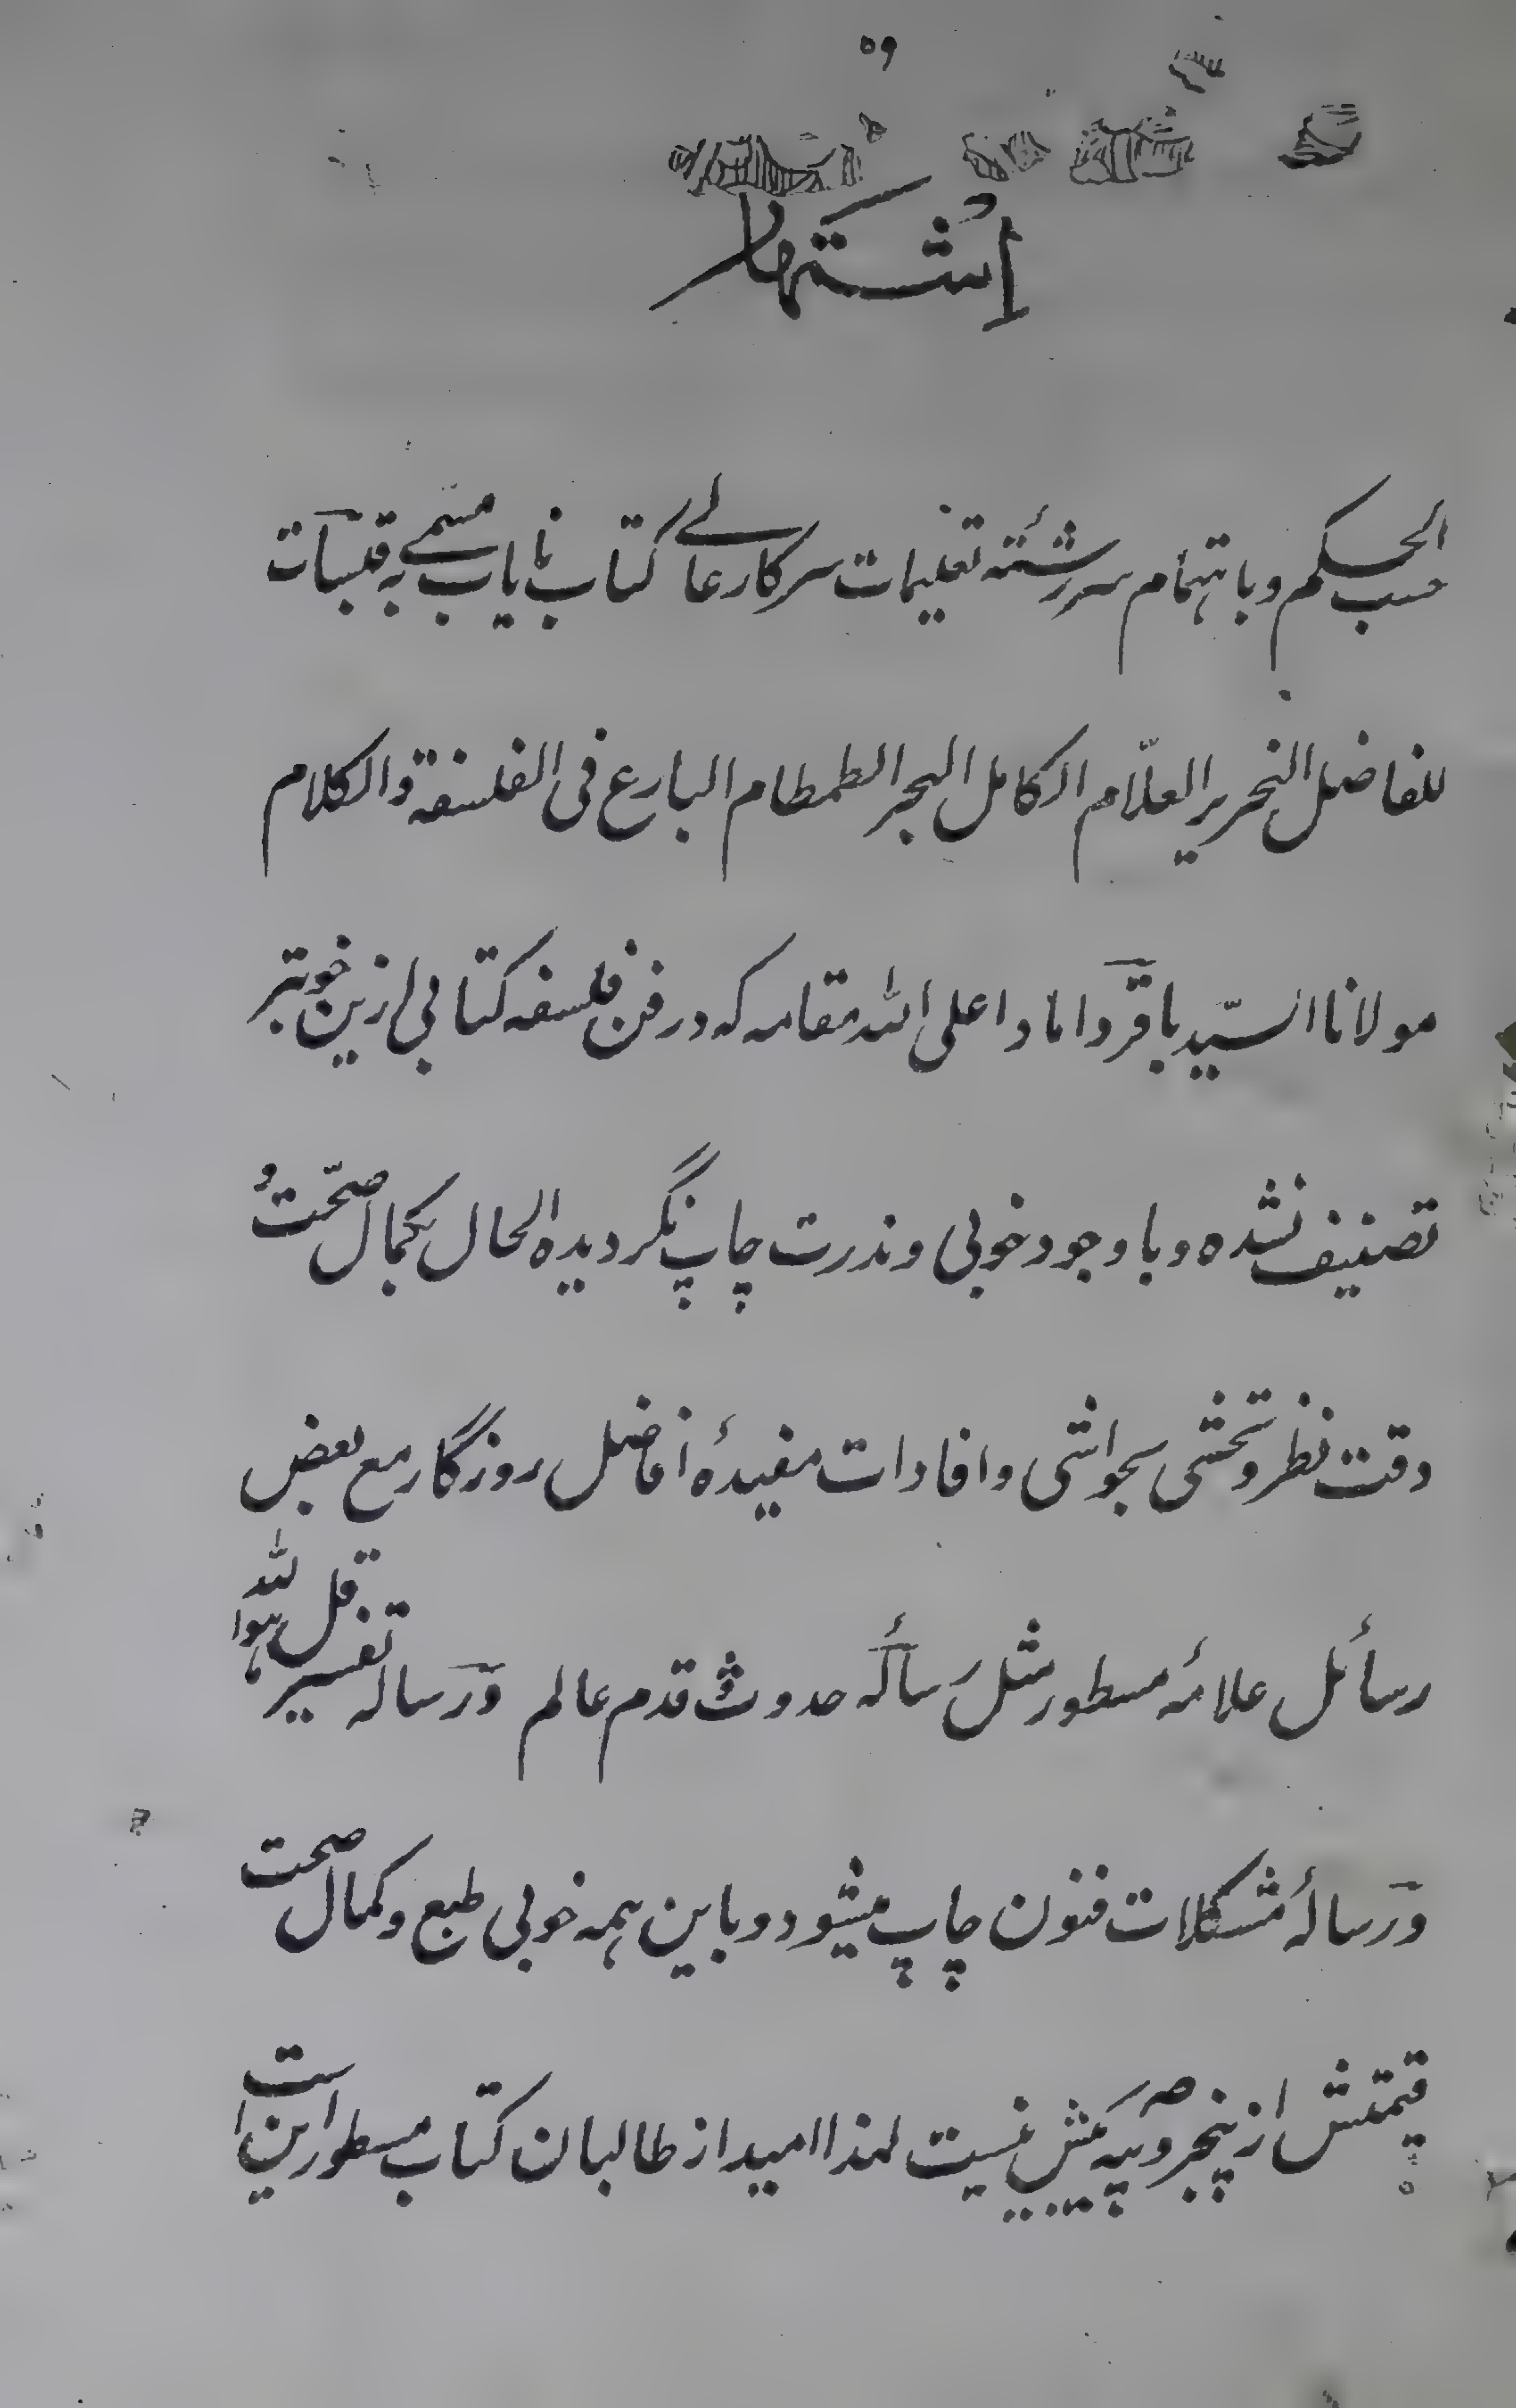 اشتهار
حسب الحکم و باهتمام سررشتهٔ تعلیمات سرکار عالے کتاب نایاب مسمے به قبسات
للفاضل النحریر العلّام الکامل البحر الطمطام البارع فی الفلسفة والکلام
مولانا السیّد باقر داماد اعلی الله مقامه که در فن فلسفه کتابی ازین خوبتر
تصنیف نشده و باوجود خوبی و ندرت چاپ نگردیده الحال بکمال صحّت و
دقت نظر و تحشی بحواشی و افادات مفیدهٔ افاضل روزگار مع بعض
رسائل علامهٔ مسطور مثل رسالهٔ حدوث قدم عالم و رساله تفسیر قل هو الله
و رسالهٔ مشکلات فنون چاپ میشود و باین همه خوبی طبع و کمال صحت
قیمتش از پنجروپیه بیش نیست لهذا امید از طالبان کتاب مسطور این است